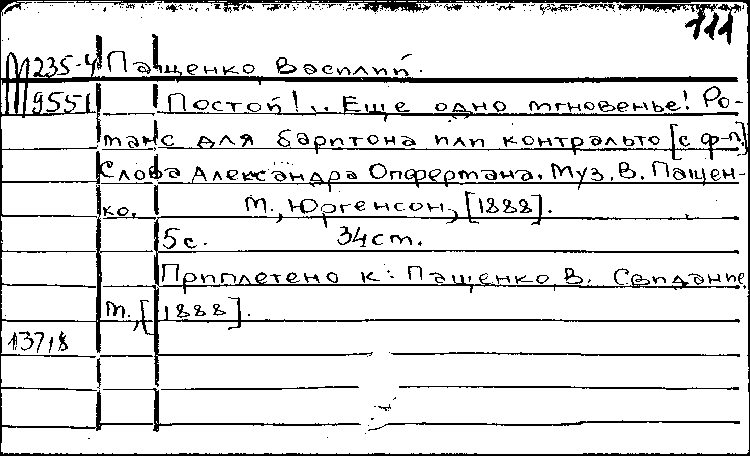 111
Ш235-4 Пащенко, Василий.
9551 Постой!.. Еще одно мгновенье! Ро-
манс для баритона или контральто [с ф-п.]
Слова Александра Опфермана. Муз. В. Пащен-
ко. М., Юргенсон, [1888].
5 с. 34 см.
Приплетено к: Пащенко, В. Свидание,
М., [1888].
13718